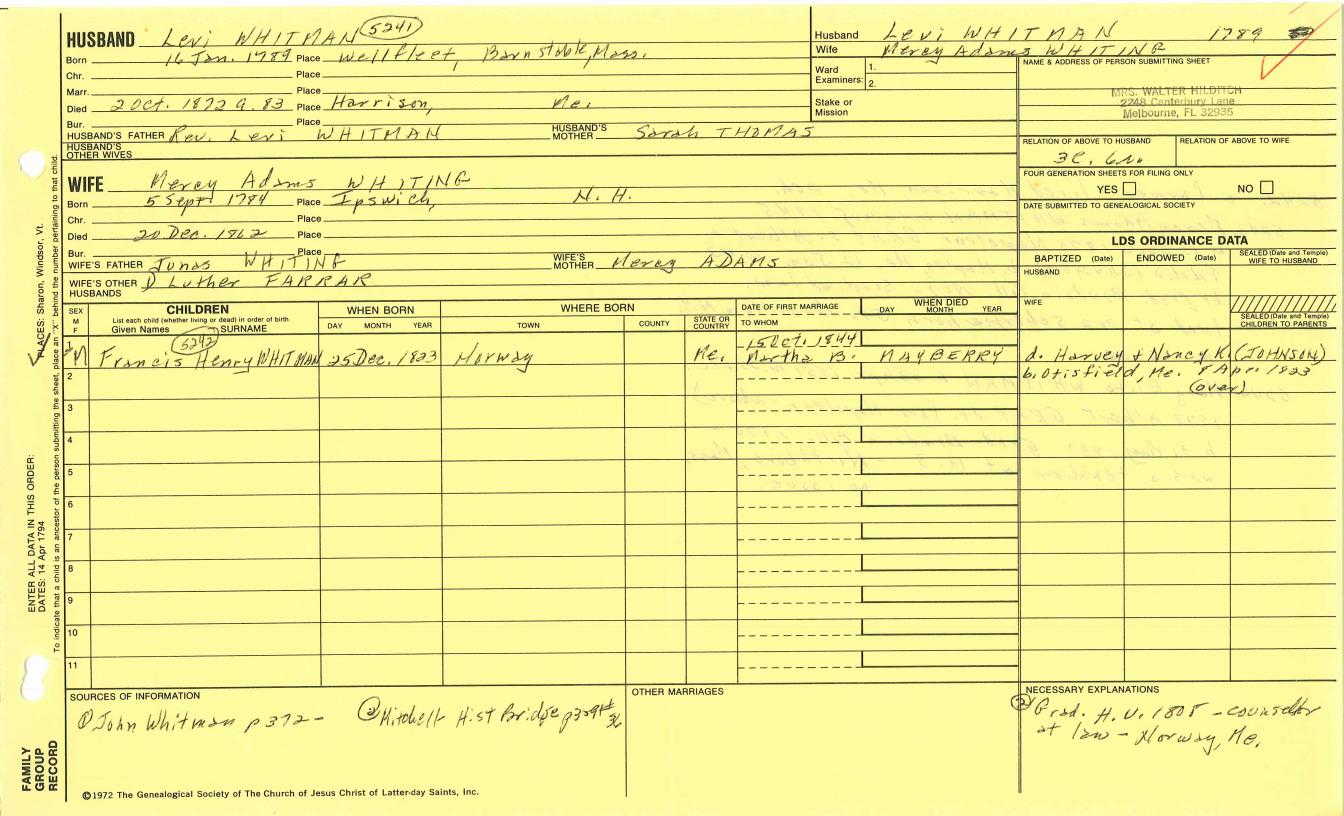 HUSBAND Levi WHITMAN 5241
Born 16 Jan. 1789 Place Wellfleet, Barnstable, Mass.
Chr. Place
Marr. Place
Died 2 Oct. 1872 a. 83 Place Harrison, Me.
Bur. Place
HUSBAND'S FATHER Rev. Levi WHITMAN HUSBAND'S MOTHER Sarah THOMAS
HUSBAND'S OTHER WIVES
WIFE Mercy Adams WHITING
Born 5 Sept 1784 Place Ipswich, N. H.
Chr. Place
Died 20 Dec. 1862 Place
Bur. Place
WIFE'S FATHER Jonas WHITING WIFE'S MOTHER Mercy ADAMS
WIFE'S OTHER HUSBANDS Luther FARRAR
Husband Levi WHITMAN 1789
Wife Mercy Adams WHITING
Ward
Examiners: 1.
2.
Stake or
Mission
NAME & ADDRESS OF PERSON SUBMITTING SHEET
MRS. WALTER HILDITCH
2248 Canterbury Lane
Melbourne, FL 32935
RELATION OF ABOVE TO HUSBAND RELATION OF ABOVE TO WIFE
3C. 6r.
FOUR GENERATION SHEETS FOR FILING ONLY
YES NO
DATE SUBMITTED TO GENEALOGICAL SOCIETY
LDS ORDINANCE DATA
BAPTIZED (Date) ENDOWED (Date) SEALED (Date and Temple) WIFE TO HUSBAND
HUSBAND
WIFE
SEALED (Date and Temple) CHILDREN TO PARENTS
SEX
M
F
CHILDREN
List each child (whether living or dead) in order of birth.
Given Names SURNAME
WHEN BORN
DAY MONTH YEAR
WHERE BORN
TOWN COUNTY STATE OR COUNTRY
DATE OF FIRST MARRIAGE
TO WHOM
WHEN DIED
DAY MONTH YEAR
5242
15 Oct. 1844
1 M Francis Henry WHITMAN 25 Dec. 1823 Norway Me. Martha B. MAYBERRY d. Harvey + Nancy K. (JOHNSON)
b. Otisfield, Me. 8 Apr. 1823
(over)
2
3
4
5
6
7
8
9
10
11
SOURCES OF INFORMATION
① John Whitman p 372 - ② Mitchell Hist Bridge
OTHER MARRIAGES
NECESSARY EXPLANATIONS
② Grad. H. U. 1808 - counsellor
at law - Norway, Me.
©1972 The Genealogical Society of The Church of Jesus Christ of Latter-day Saints, Inc.
FAMILY
GROUP
RECORD
ENTER ALL DATA IN THIS ORDER:
DATES: 14 Apr 1794 PLACES: Sharon, Windsor, Vt.
To indicate that a child is an ancestor of the person submitting the sheet, place an "X" behind the number pertaining to that child.